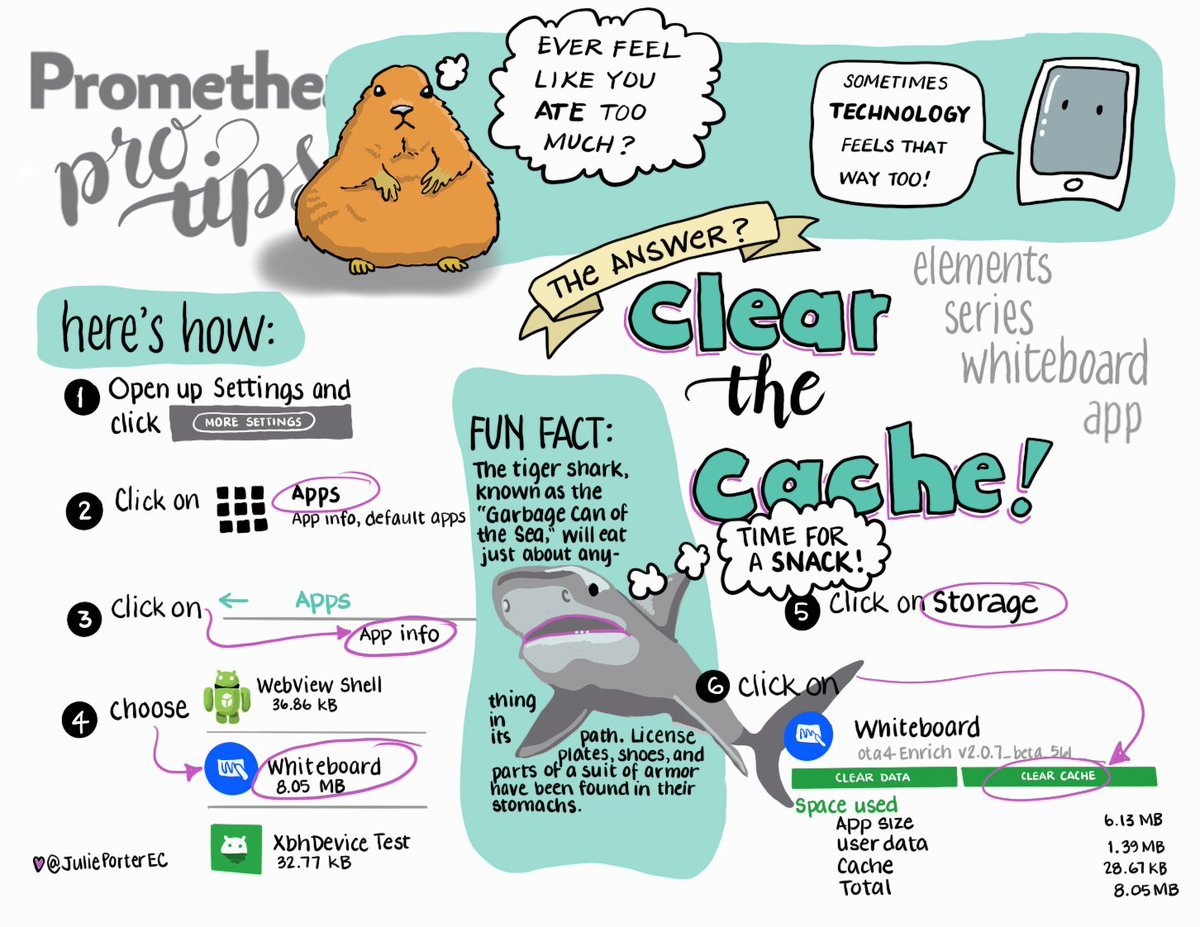 Promethe
pro
tips
EVER FEEL
LIKE YOU
ATE TOO
MUCH?
SOMETIMES
TECHNOLOGY
FEELS THAT
WAY TOO!
THE ANSWER?
Clear
the
Cache!
elements
series
whiteboard
app
here's how:
1 Open up Settings and
click MORE SETTINGS
2 Click on Apps
App info, default apps
3 Click on ← Apps
App info
4 choose
WebView Shell
36.86 KB
Whiteboard
8.05 MB
XbhDevice Test
32.77 KB
@JuliePorterEC
FUN FACT:
The tiger shark,
known as the
"Garbage Can of
the Sea," will eat
just about any-
thing
in
its
path. License
plates, shoes, and
parts of a suit of armor
have been found in their
stomachs.
TIME FOR
A SNACK!
5 Click on Storage
6 click on
Whiteboard
ota4Enrich v2.0.7_beta_5b1
CLEAR DATA
CLEAR CACHE
Space used
App size 6.13 MB
user data 1.39 MB
Cache 28.67 KB
Total 8.05 MB